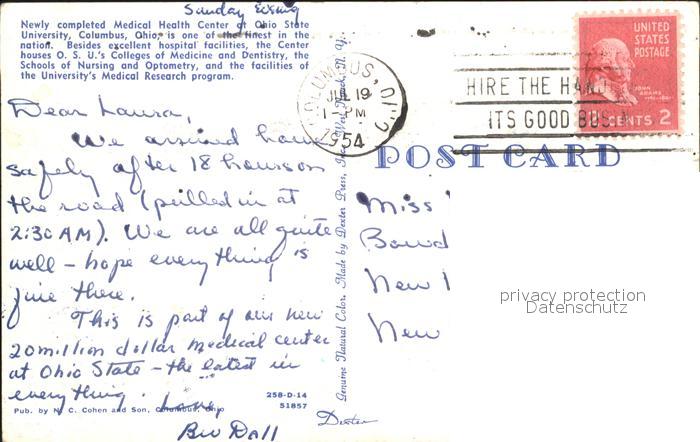 Sunday Evening
Newly completed Medical Health Center at Ohio State
University, Columbus, Ohio, is one of the finest in the
nation. Besides excellent hospital facilities, the Center
houses O. S. U.'s Colleges of Medicine and Dentistry, the
Schools of Nursing and Optometry, and the facilities of
the University's Medical Research program.
Dear Laura,
We arrived home
safely after 18 hours on
the road (pulled in at
2:30 AM). We are all quite
well - hope everything is
fine there.
This is part of our new
20 million dollar medical center
at Ohio State - the latest in
everything. Love,
Bev Dall
Pub. by N. C. Cohen and Son, Columbus, Ohio
258-D-14
51857
Genuine Natural Color. Made by Dexter Press, Inc. West Nyack, N. Y.
Dexter
COLUMBUS, OHIO
JUL 19
1 - PM
1954
HIRE THE HAND
ITS GOOD BUS
UNITED
STATES
POSTAGE
JOHN
ADAMS
CENTS 2
POST CARD
Miss
Bowd
New
New
privacy protection
Datenschutz